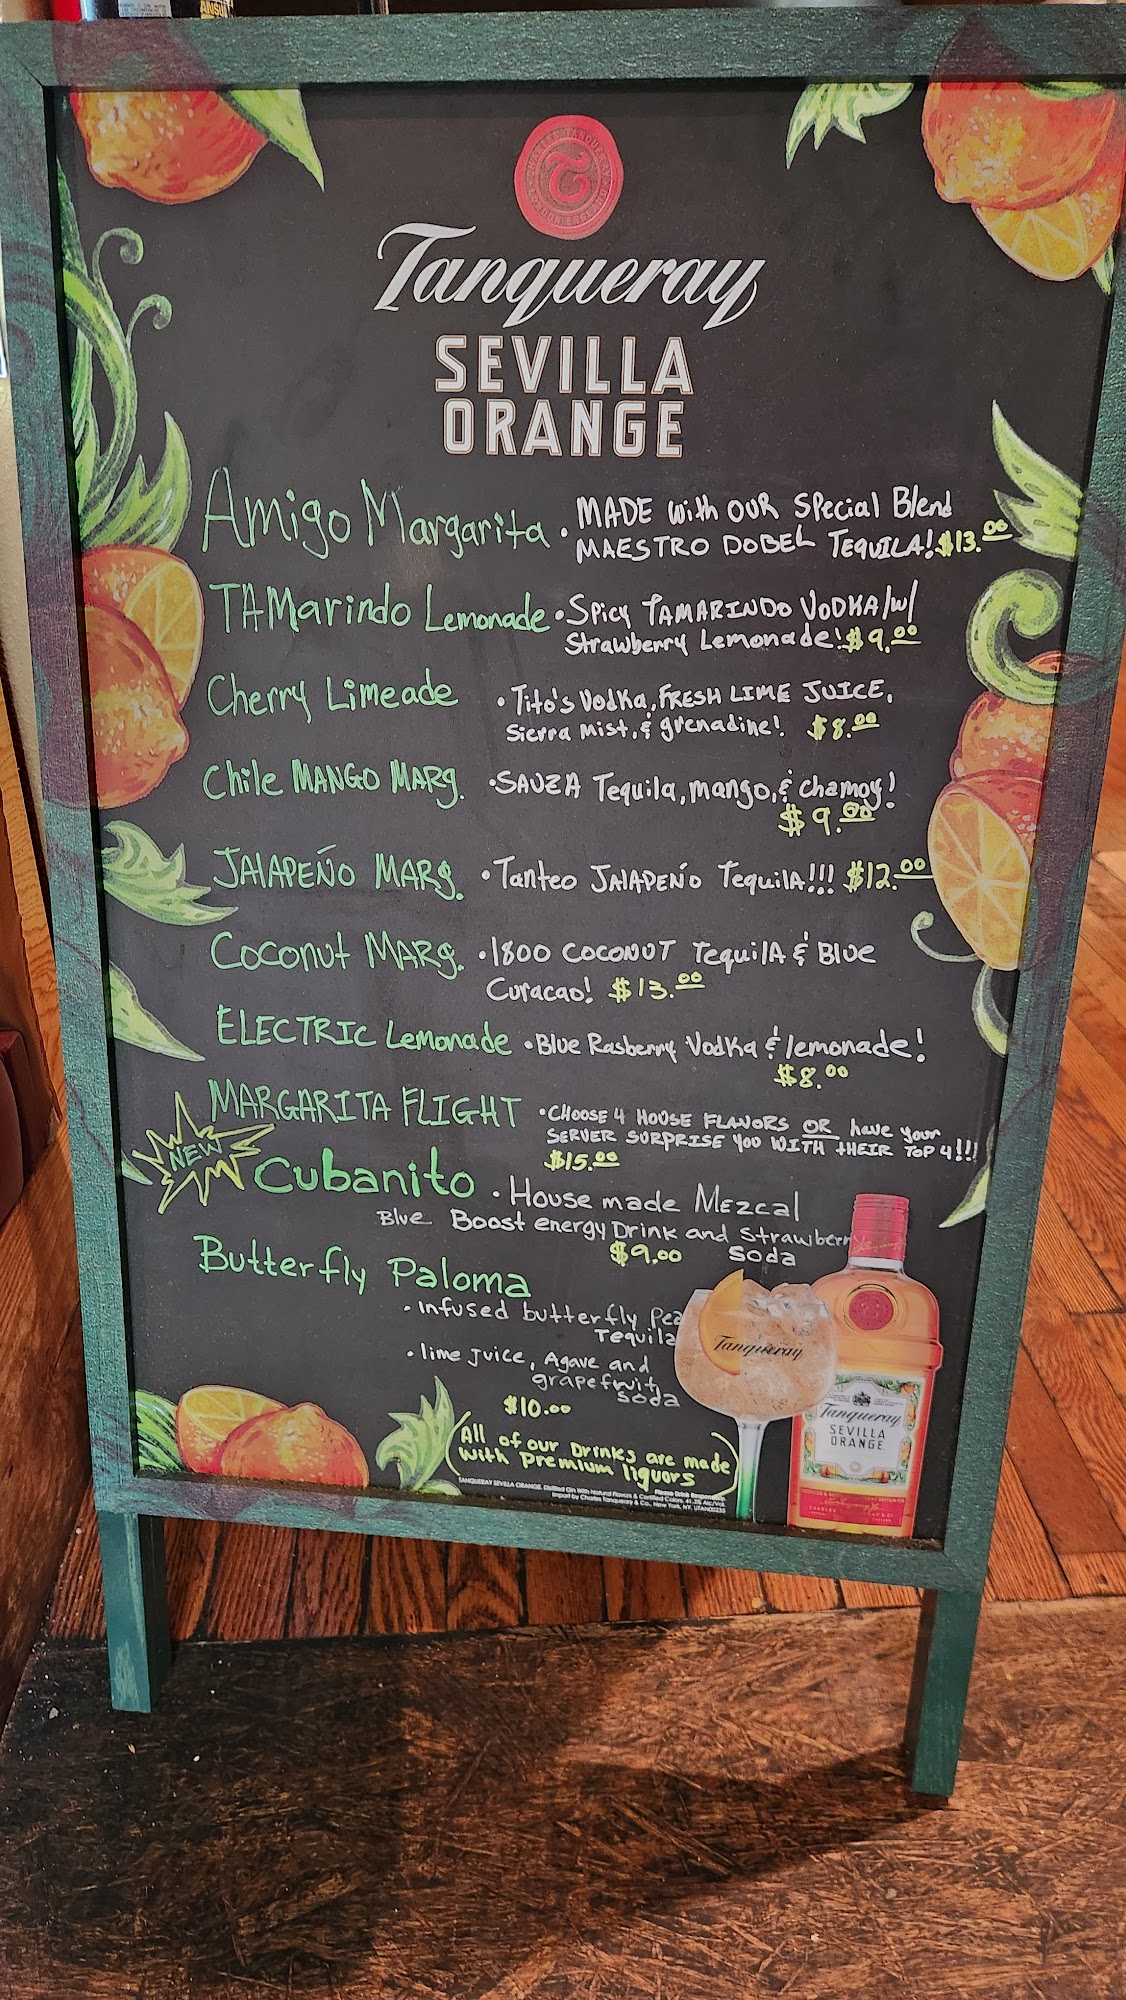 Tanqueray
SEVILLA
ORANGE
Amigo Margarita • MADE with OUR SPecial Blend
MAESTRO DOBEL TEQUILA! $13.00
TAMarindo Lemonade • SPicy TAMARINDO VODKA/w/
Strawberry Lemonade! $9.00
Cherry Limeade • Tito's Vodka, FRESH LIME JUICE,
Sierra mist, & grenadine! $8.00
Chile MANGO MARg. • SAUZA Tequila, mango, & chamoy!
$9.00
JAlAPEÑO MARg. • Tanteo JAlAPEÑO TequilA!!! $12.00
Coconut MARg. • 1800 COCONUT TequilA & Blue
Curacao! $13.00
ELECTRIC Lemonade • Blue Rasberry Vodka & lemonade!
$8.00
MARGARITA FLIGHT • CHOOSE 4 HOUSE FLAVORS OR have your
SERVER SURPRISE YOU WITH tHEIR TOP 4!!!
$15.00
NEW
Cubanito • House made Mezcal
Blue Boost energy Drink and Strawberry
$9.00 Soda
Butterfly Paloma
• infused butterfly Pea
Tequila
• lime juice, Agave and
grapefruit
soda
$10.00
(All of our Drinks are made
with premium liquors)
Tanqueray
Tanqueray
SEVILLA
ORANGE
Please Drink Responsibly.
TANQUERAY SEVILLA ORANGE. Distilled Gin With Natural Flavors & Certified Colors. 41.3% Alc/Vol.
Import by Charles Tanqueray & Co., New York, NY.